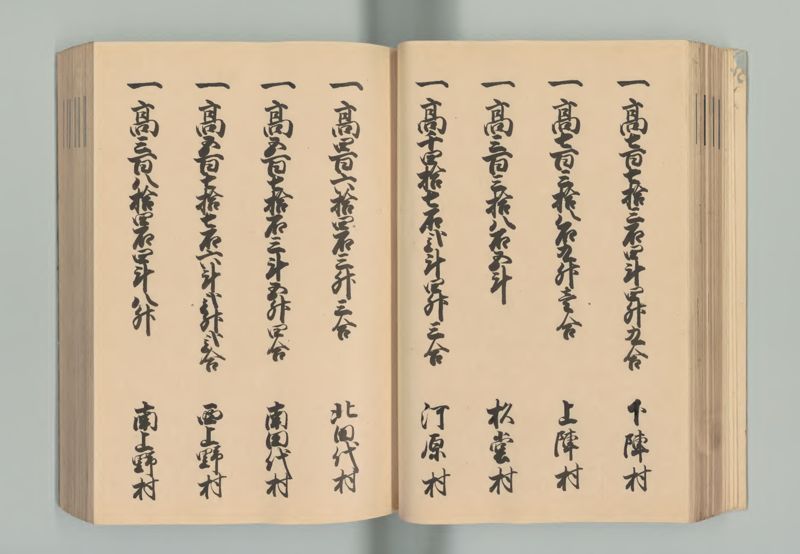 一高七百七拾三石四斗四升九合 下陣村
一高七百三拾八石九升壱合 上陣村
一高三百三拾八石五斗 松堂村
一高千四拾七石弐斗四升三合 河原村
一高四百六拾四石三升三合 北田代村
一高五百七拾石三斗五升四合 南田代村
一高五百七拾七石六斗弐升弐合 西上野村
一高三百八拾四石四斗八升 南上野村